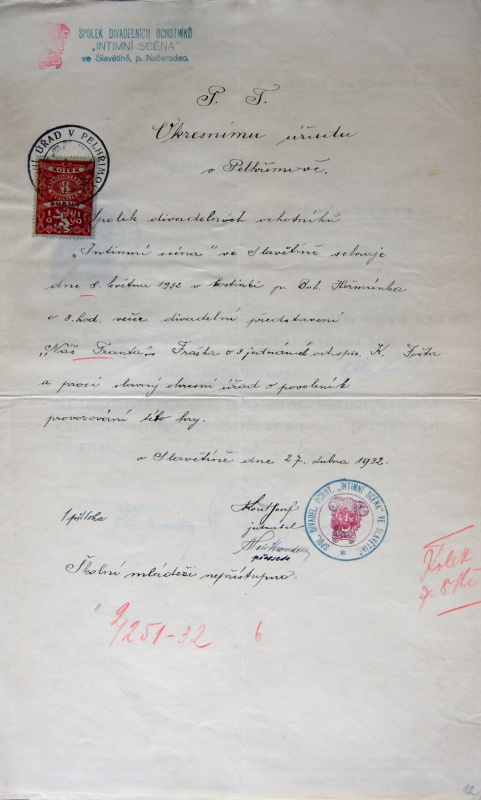 SPOLEK DIVADELNÍCH OCHOTNÍKŮ
„INTIMNÍ SCÉNA“
ve Slavětíně, p. Načeradec.
P. T.
Okresnímu úřadu
v Pelhřimově.
Spolek divadelních ochotníků
„Intimní scéna“ ve Slavětíně sehraje
dne 8. května 1932 v hostinci p. Heřmánka
o 8. hod. večer divadelní představení
„Náš Franta“ Fraška o 3 jednáních od spis. K.
a prosí slavný okresní úřad o povolení k
provozování této hry.
v Slavětíně dne 27. dubna 1932.
1 příloha
Josef
jednatel
předseda
SPOL. DIVADEL. OCHOT. „INTIMNÍ SCÉNA“ VE SLAVĚTÍNĚ
Školní mládeži nepřístupno.
Kolek
za 8 Kč
9/251-32 6
12